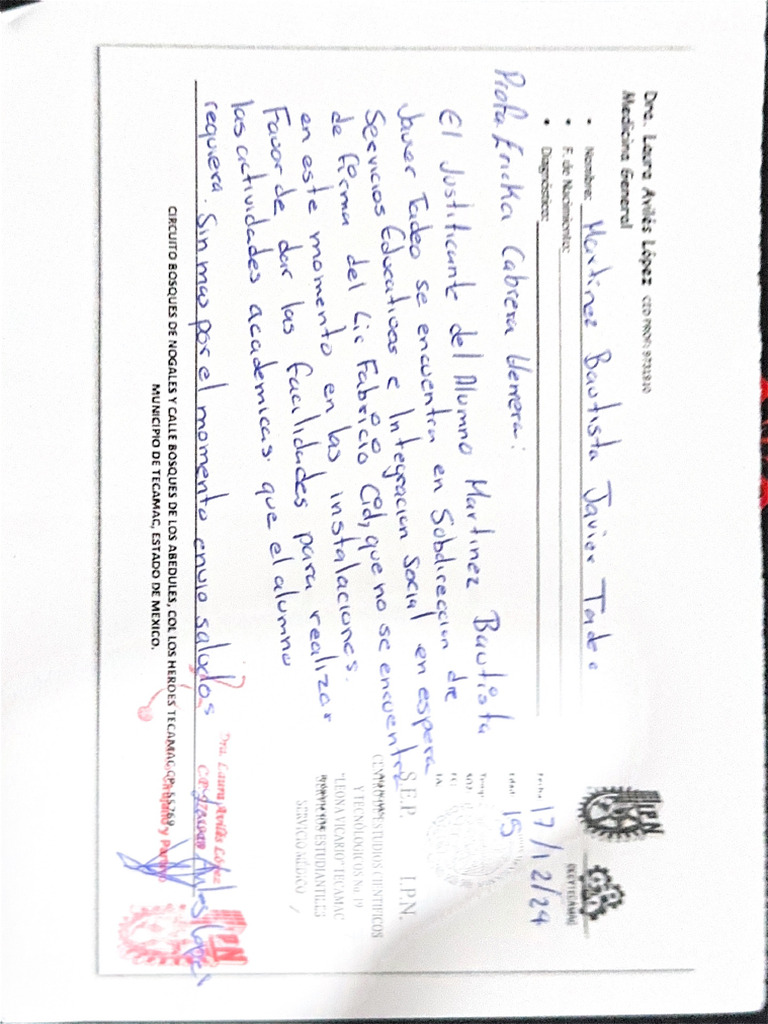 Dra. Laura Avilés López CED PROF: 9731910
Medicina General
IPN
CECYTECAMAC
Nombre: Martinez Bautista Javier Tadeo
Fecha: 17/12/24
F. de Nacimiento:
Edad: 15
Diagnóstico:
Profa Ericka Cabrera Herrera:
El Justificante del Alumno Martinez Bautista
Javier Tadeo se encuentra en Subdireccion de
Servicios Educativos e Integracion Social en espera
de firma del Lic Fabricio Cid, que no se encuentra
en este momento en las instalaciones.
Favor de dar las facilidades para realizar
las actividades academicas que el alumno
requiera. Sin mas por el momento envio saludos
S.E.P. I.P.N.
CENTRO DE ESTUDIOS CIENTIFICOS
Y TECNOLOGICOS No. 19
"LEONA VICARIO" TECAMAC
SERVICIOS ESTUDIANTILES
SERVICIO MEDICO
Dra. Laura Avilés López
Aviles Lopez
Cirujano y Partero
IPN
CIRCUITO BOSQUES DE NOGALES Y CALLE BOSQUES DE LOS ABEDULES, COL LOS HEROES TECAMAC, CP. 55769
MUNICIPIO DE TECAMAC, ESTADO DE MEXICO.